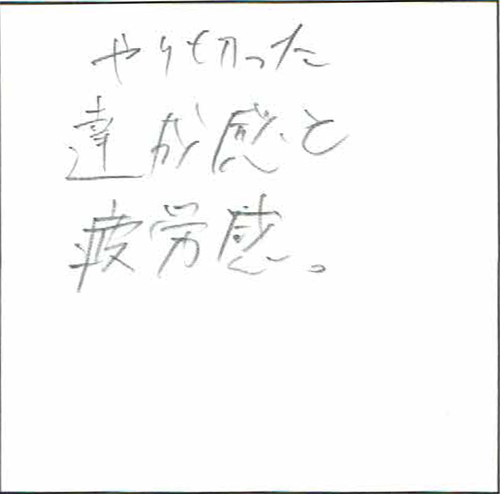 やり切った
達成感と
疲労感。